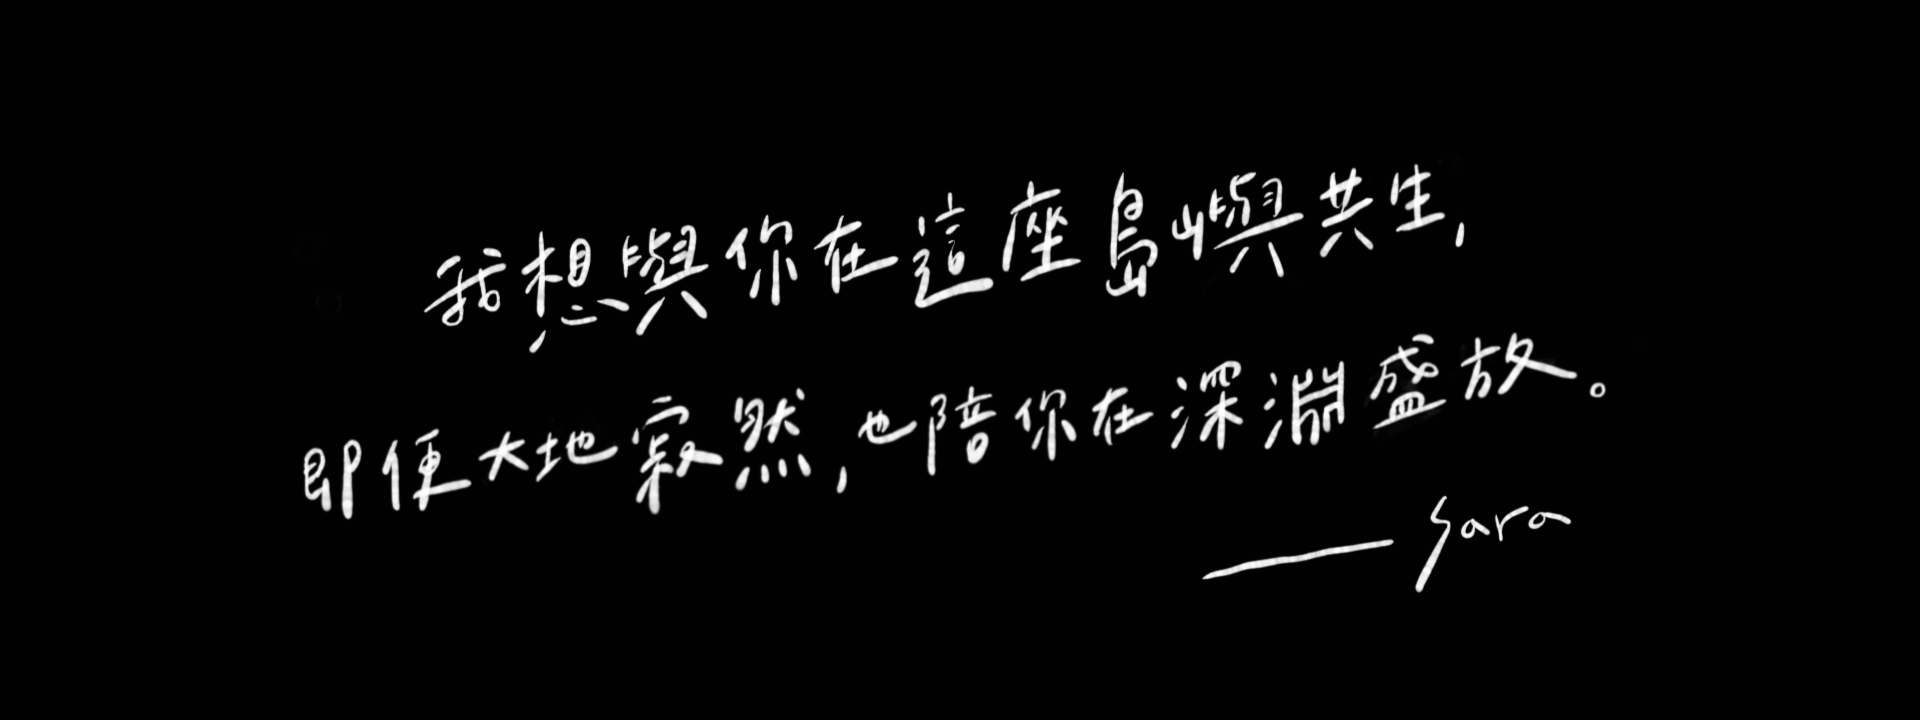 我想與你在這座島嶼共生,
即便大地寂然,也陪你在深淵盛放。
—— Sara